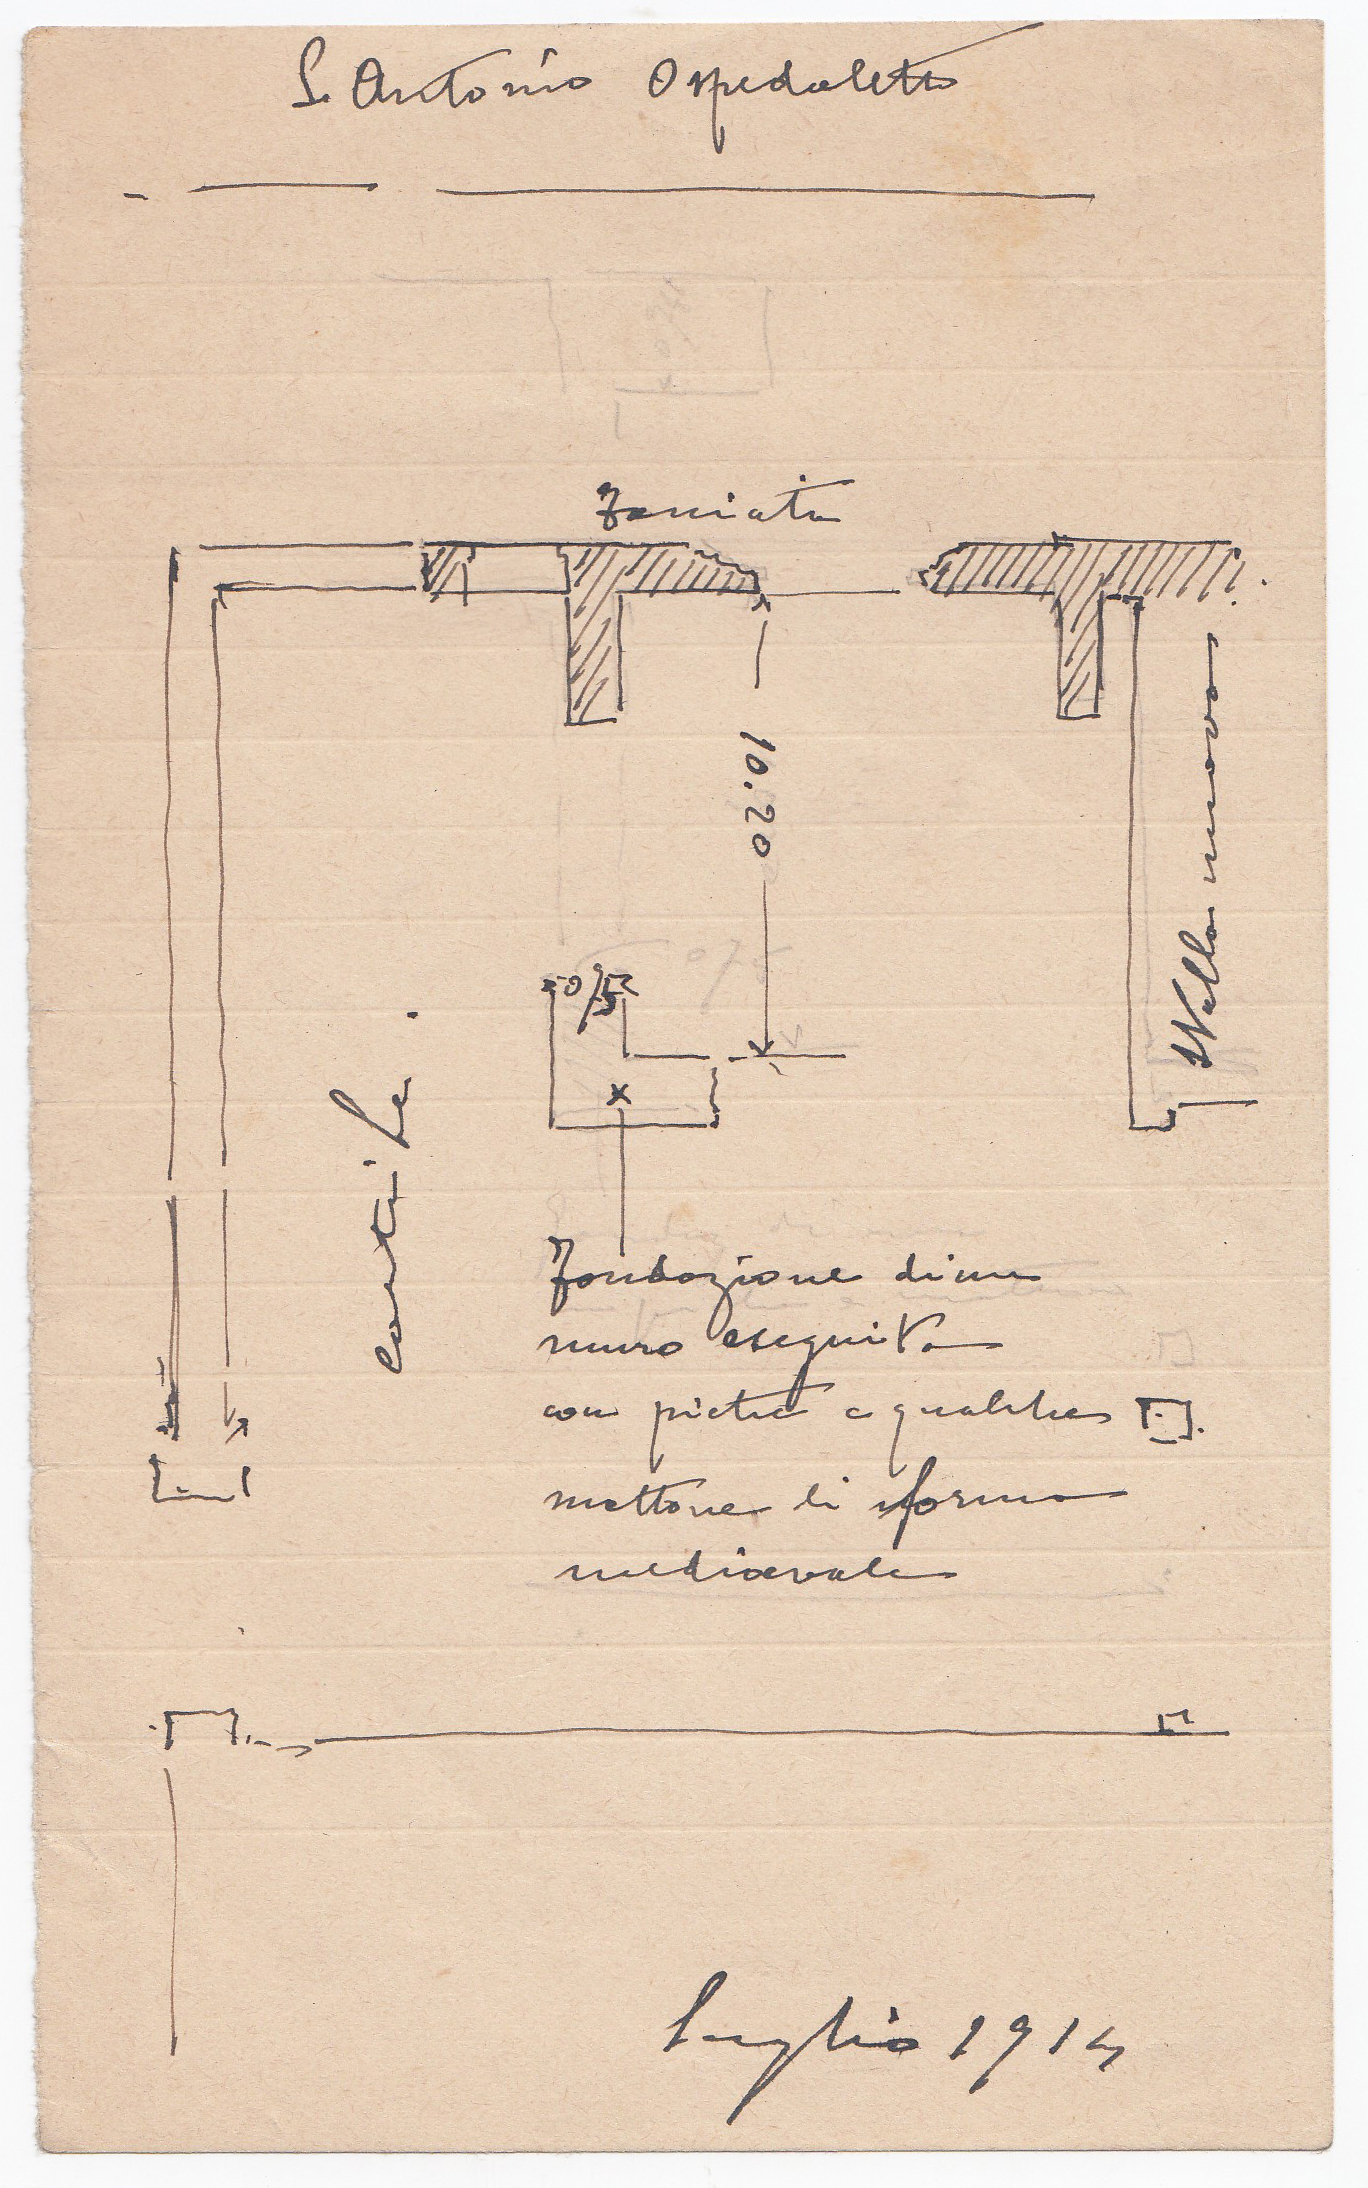 S. Antonio Ospedaletto
Facciata
10.20
Stalla nuova
cortile.
Fondazione di un
muro eseguito
con pietre e qualche
mattone di forma
medioevale
Luglio 1914